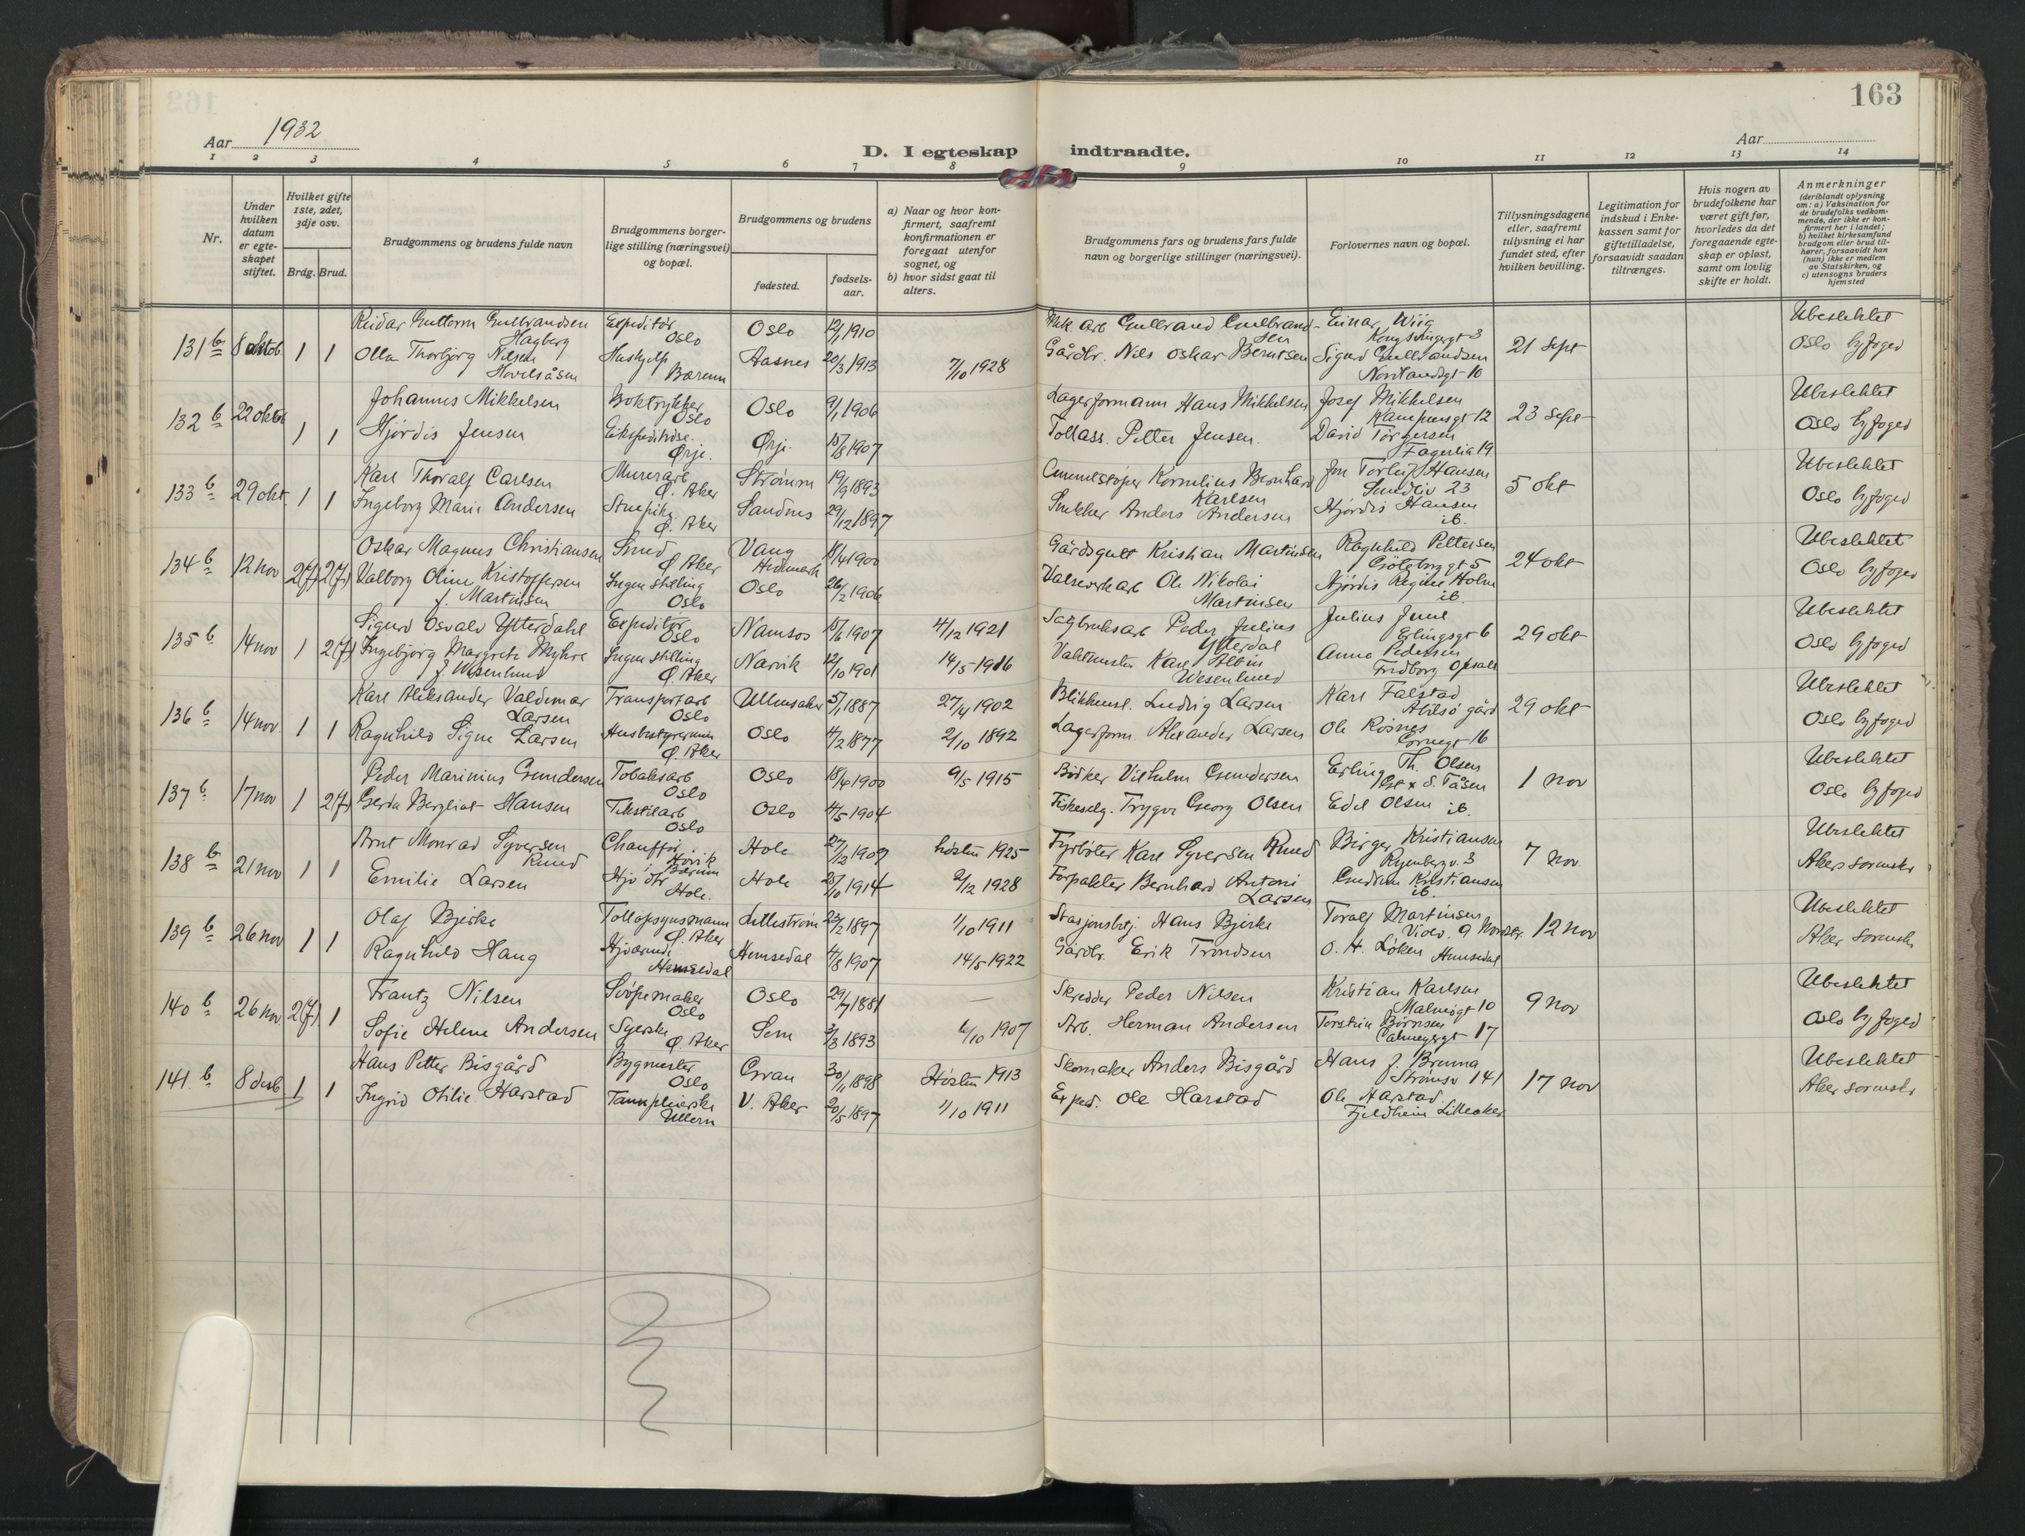 163
Aar 1932
D. I egteskap indtraadte.
Aar
1 2 3 4 5 6 7 8 9 10 11 12 13 14
Nr.
Under hvilken datum er egteskapet stiftet.
Hvilket gifte 1ste, 2det, 3dje osv.
Brdg. Brud.
Brudgommens og brudens fulde navn
Brudgommens borgerlige stilling (næringsvei) og bopæl.
Brudgommens og brudens
fødested.
fødselsaar.
a) Naar og hvor konfirmert, saafremt konfirmationen er foregaat utenfor sognet, og
b) hvor sidst gaat til alters.
Brudgommens fars og brudens fars fulde navn og borgerlige stillinger (næringsvei).
Forlovernes navn og bopæl.
Tillysningsdagene eller, saafremt tillysning ei har fundet sted, efter hvilken bevilling.
Legitimation for indskud i Enkekassen samt for giftetilladelse, forsaavidt saadan tiltrænges.
Hvis nogen av brudefolkene har været gift før, hvorledes da det foregaaende egteskap er opløst, samt om lovlig skifte er holdt.
Anmerkninger (deriblandt oplysning om: a) Vaksination for de brudefolks vedkommende, der ikke er konfirmert her i landet; b) hvilket kirkesamfund brudgom eller brud tilhører, forsaavidt han (hun) ikke er medlem av Statskirken, og c) utensogns bruders hjemsted
131 b 8 oktob 1 1 Reidar Guttorm Gulbrandsen Hagberg Expeditør Oslo Oslo 12/1 1910 Gulbrand Gulbrandsen Einar Wiig Kongsvingergt 3 21 sept Ubeslektet
Olla Thorbjørg Nilsen Hovelsåsen Hushjelp Bærum Aasnes 20/3 1913 7/10 1928 Gårdbr. Nils Oskar Berntsen Sigurd Gulbrandsen Nordlandsgt 10 Oslo byfoged
132 b 22 oktob 1 1 Johannes Mikkelsen Boktrykker Oslo Oslo 9/1 1906 Lagerformann Hans Mikkelsen Josef Mikkelsen Kampensgt 12 23 sept Ubeslektet
Hjørdis Jensen Ørje. Ørje. 15/8 1907 Tollass. Petter Jensen. David Torgersen Fagerlia 19 Oslo byfoged
133 b 29 okt. 1 1 Karl Thoralf Carlsen Murerarb Ø. Aker Strømm 19/9 1893 Kornelius Bernhard Karlsen Jon Torleif Hansen 23 5 okt Ubeslektet
Ingeborg Marie Andersen Stuepike Ø. Aker Sandnes 29/12 1897 Snekker Anders Andersen Hjørdis Hansen ib. Oslo byfoged
134 b 12 nov 2(f) 2(f) Oskar Magnus Christiansen Smed Ø. Aker Vang Hedmark 18/4 1900 Gårdsgutt Kristian Martinsen Ragnhild Pettersen Gøteborggt 5 24 okt Ubeslektet
Valborg Oline Kristoffersen f. Martinsen Ingen stilling Oslo Oslo 26/2 1906 Valseverkarb Ole Nikolai Martinsen Hjørdis Regine Holm ib. Oslo byfoged
135 b 14 nov 1 2(f) Sigurd Osvald Ytterdahl Expeditør Oslo Namsos 15/6 1907 4/12 1921 Sagbruksarb Peder Julius Ytterdal Julius Juul Erlingsgt 6 29 okt Ubeslektet
Ingebjørg Margrete Myhre f. Wesenlund Ingen stilling Ø. Aker Narvik 12/10 1901 14/5 1916 Vaktmester Karl Albin Wesenlund Anna Pedersen Fredborg Opsal Oslo byfoged
136 b 14 nov. 1 1 Karl Aleksander Valdemar Larsen Transportarb Oslo Ullensaker 5/1 1887 27/4 1902 Blikkensl. Ludvig Larsen Karl Falstad Abilsø gård 29 okt Ubeslektet
Ragnhild Signe Larsen Husbestyrerinne Ø. Aker Oslo 4/2 1877 2/10 1892 Lagerform. Alexander Larsen Ole Røsnes 16 Oslo byfoged
137 b 17 nov 1 2(f) Peder Marinius Gundersen Tobaksarb Oslo Oslo 18/4 1900 9/5 1915 Bødker Vilhelm Gundersen Erling Th. Olsen S. Tåsen 1 nov Ubeslektet
Gerda Bergliot Hansen Tekstilarb Oslo Oslo 4/5 1904 Fiskeselg. Trygve Georg Olsen Edel Olsen ib. Oslo byfoged
138 b 21 nov 1 1 Arnt Monrad Syversen Ruud Chauffør Høvik Bærum Hole 27/12 1907 høsten 1925 Fyrbøter Karl Syversen Ruud Birger Kristiansen Ryenbergv. 3 7 nov. Ubeslektet
Emilie Larsen Hole. Hole 25/10 1914 2/12 1928 Forpakter Bernhard Antoni Larsen Gudrun Kristiansen ib. Akers sorenskr
139 b 26 nov 1 1 Olaf Bjerke Tollopsynsmann Ø. Aker Lillestrøm 23/2 1897 1/10 1911 Stasjonsbetj. Hans Bjerke Toralf Martinsen 9 12 nov Ubeslektet
Ragnhild Haug Hjemmev. Hemsedal Hemsedal 4/8 1907 14/5 1922 Gårdbr. Erik Trondsen O. H. Løken Hemsedal Aker sorenskr
140 b 26 nov 2(f) 1 Frantz Nilsen Svøpemaker Oslo Oslo 29/7 1881 — Skredder Peder Nilsen Kristian Karlsen Malmøgt 10 9 nov Ubeslektet
Sofie Helene Andersen Syerske Ø. Aker Sem 3/3 1893 6/10 1907 Arb. Herman Andersen Torstein Børnsen Calmeyergt 17 Oslo byfoged
141. b 8 desb 1 1 Hans Petter Bisgård Bygmester Oslo Gran 30/11 1898 Høsten 1913 Skomaker Anders Bisgård Hans J. Brenna Strømsv 141 17 nov Ubeslektet
Ingrid Otilie Harstad Tannpleierske Ullern V. Aker 20/5 1897 1/10 1911 Exped. Ole Harstad Ole Harstad Fjeldheim Lilleaker Aker sorenskr